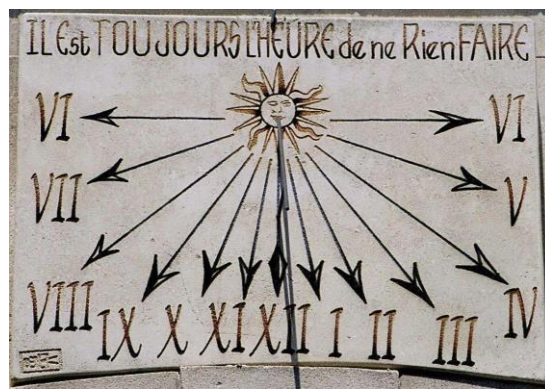 ILEst TOUJOURS L'HEURE de ne Rien FAIRE
VI VI
VII V
VIII IX X XI XII I II III IV